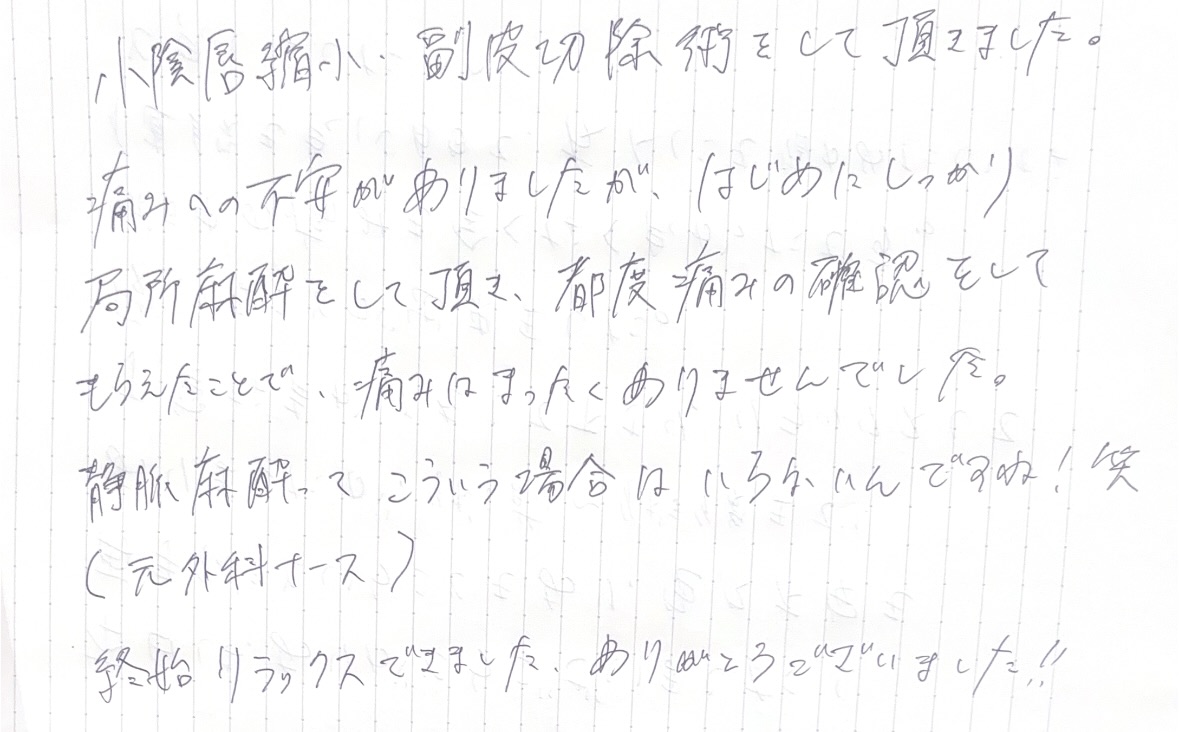 小陰唇縮小、副皮切除術をして頂きました。
痛みへの不安がありましたが、はじめにしっかり
局所麻酔をして頂き、都度痛みの確認をして
もらえたことで、痛みはまったくありませんでした。
静脈麻酔ってこういう場合はいらないんですね！笑
(元外科ナース)
終始リラックスできました、ありがとうございました!!